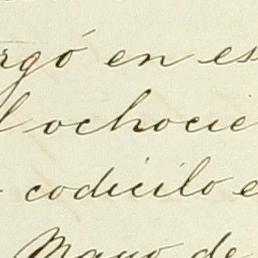 rgó en es
l ochocie
codicilo e
Mayo de